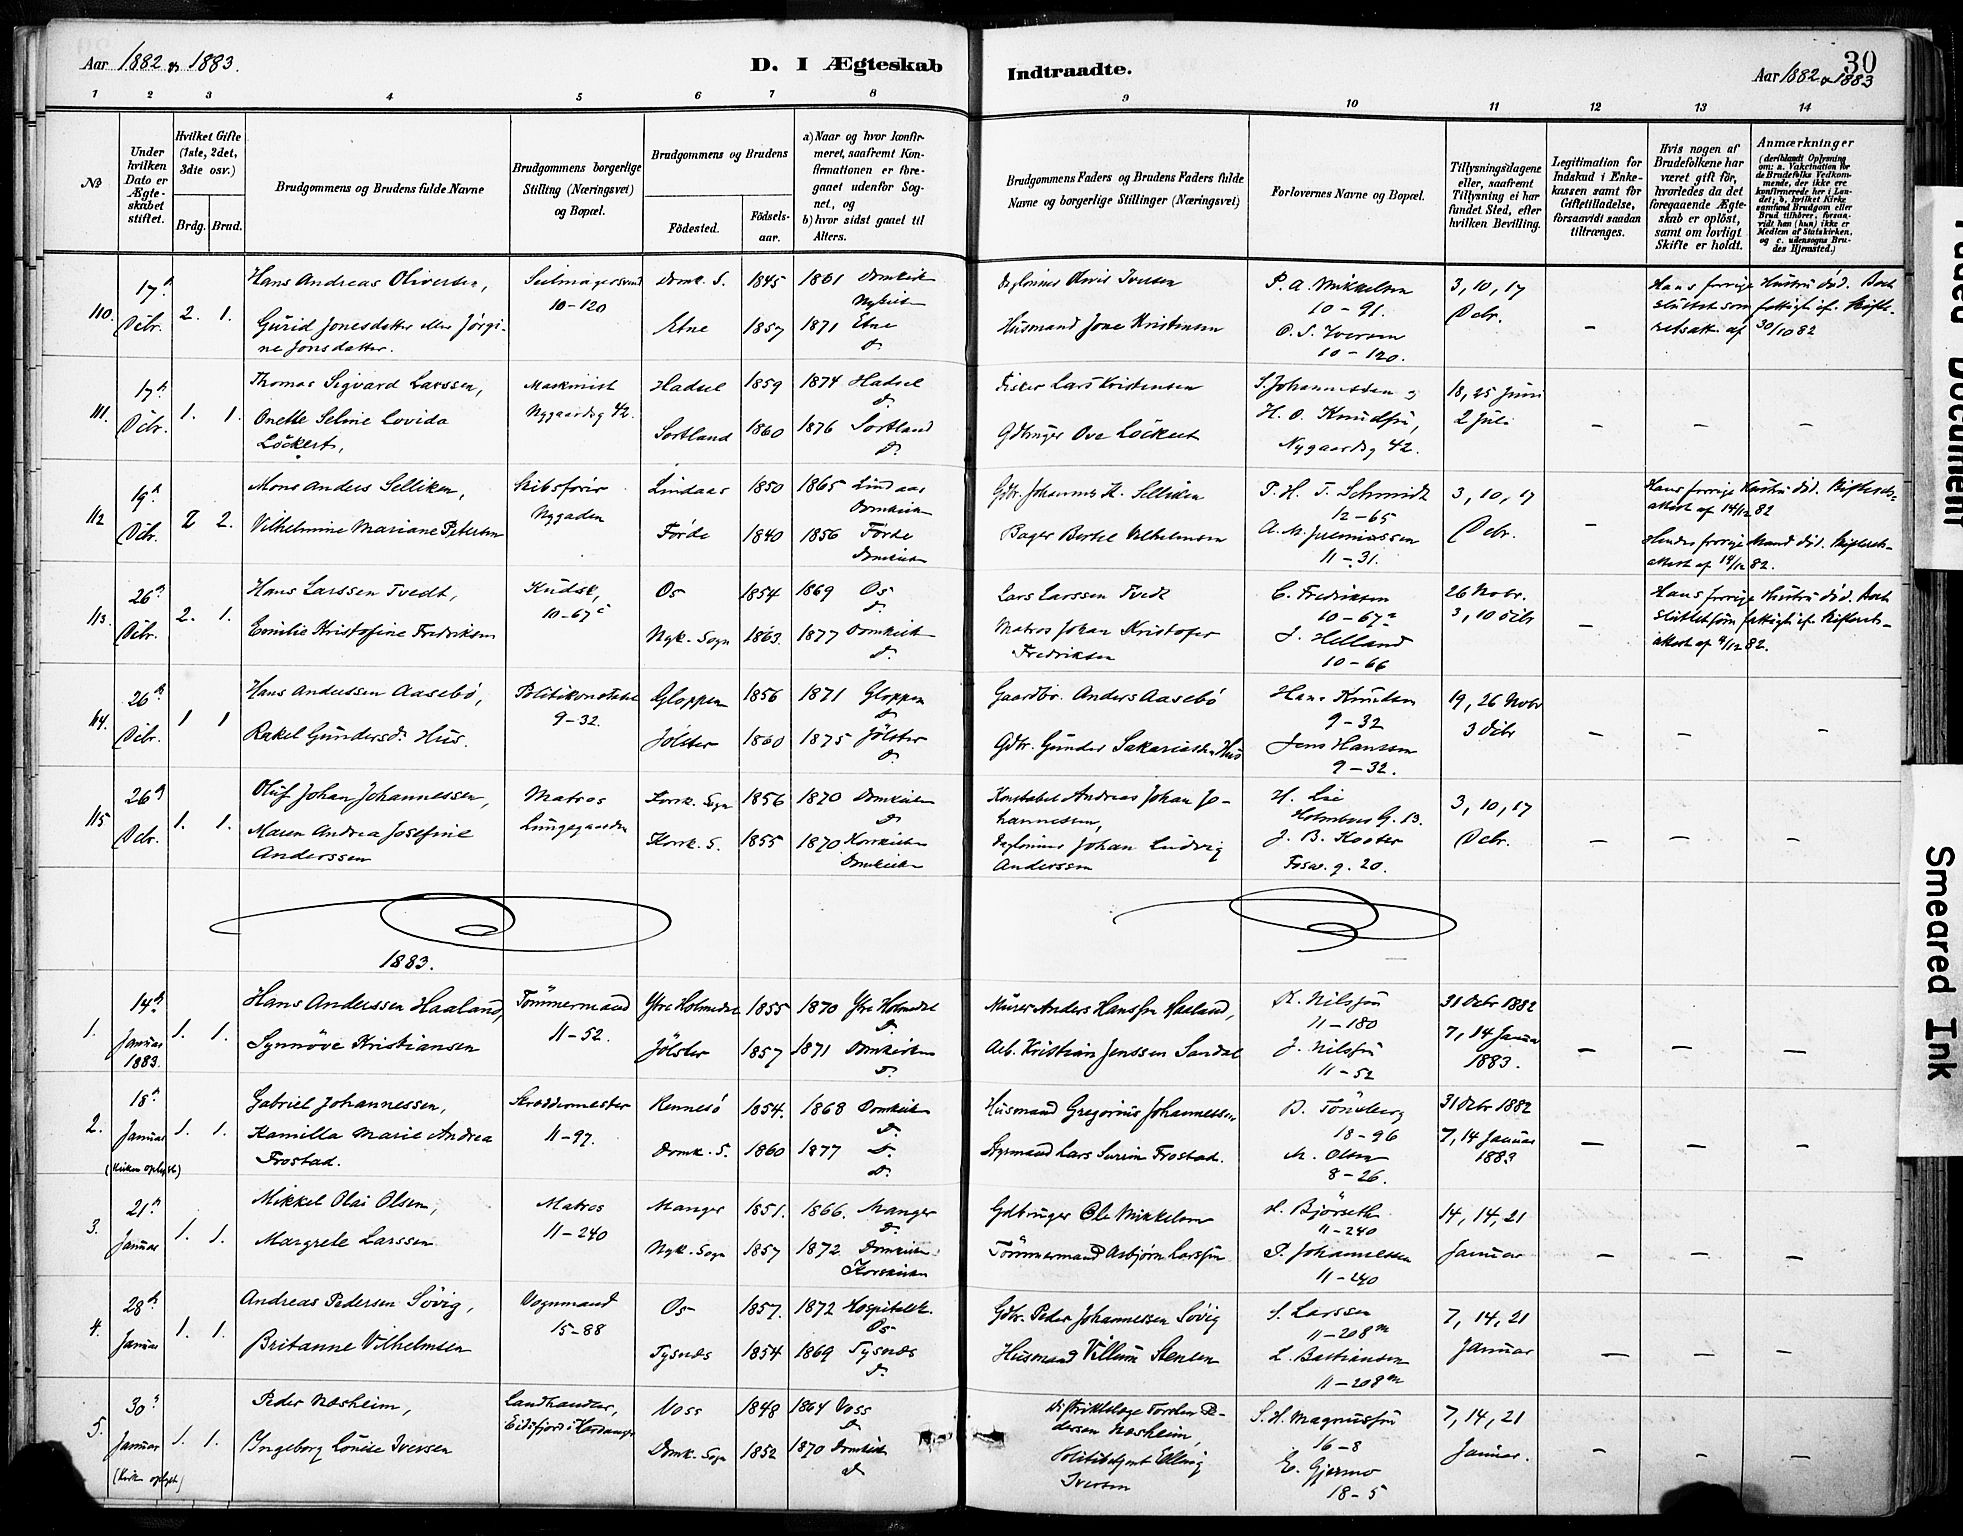 Aar 1882 & 1883.
D. I Ægteskab
Indtraadte.
30
Aar 1882 & 1883
1 2 3 4 5 6 7 8 9 10 11 12 13 14
No
Under hvilken Dato er Ægteskabet stiftet.
Hvilket Gifte (1ste, 2det, 3die osv.)
Brdg. Brud.
Brudgommens og Brudens fulde Navne
Brudgommens borgerlige Stilling (Næringsvei) og Bopæl.
Brudgommens og Brudens
Födested.
Födsels-aar.
a) Naar og hvor konfirmeret, saafremt Konfirmationen er foregaaet udenfor Sognet, og
b) hvor sidst gaaet til Alters.
Brudgommens Faders og Brudens Faders fulde Navne og borgerlige Stillinger (Næringsvei)
Forlovernes Navne og Bopæl.
Tillysningsdagene eller, saafremt Tillysning ei har fundet Sted, efter hvilken Bevilling.
Legitimation for Indskud i Enkekassen samt for Giftetilladelse, forsaavidt saadan tiltrænges.
Hvis nogen af Brudefolkene har været gift för, hvorledes da det foregaaende Ægteskab er oplöst, samt om lovligt Skifte er holdt.
Anmærkninger
(deriblandt Oplysning om: a. Vakcination for de Brudefolks Vedkommende, der ikke ere konfirmerede her i Landet; b. hvilket Kirkesamfund Brudgom eller Brud tilhörer, forsaavidt han (hun) ikke er Medlem af Statskirken, og c. udensogns Brudes Hjemsted.)
110. 17de Dcbr. 2. 1.
Hans Andreas Oliversen,
10-120
Domk. S. 1845 1861 Domkirk
Nykirk
Gurid Jonesdatter eller Jørgine Jonsdatter.
Etne 1857 1871 Etne
do.
Husmand Jone Kristensen
P. A. Mikkelsen
10-91.
O. S. Iversen
10-120.
3, 10, 17
Dcbr.
Hans forrige Hustru död.
30/10 82
111. 17de Dcbr. 1. 1.
Thomas Sigvard Larssen,
Maskinist
Nygaardsg 42.
Hadsel 1859 1874 Hadsel
do.
Onette Seline Lovida Löckert,
Sortland 1860 1876 Sortland
do.
Fisker Lars Kristensen
Gdbruger Ove Löckert
S. Johannesen &
H. O. Knudsen,
Nygaardsg 42.
18, 25 Juni
2 Juli
112 19de Dcbr. 2 2.
Mons Anders Selliken,
Skibsförer
Nygaden
Lindaas 1850 1865 Lindaas
Domkirk
Vilhelmine Mariane Petersen
Förde 1840 1856 Förde
Domkirk
Gdbr. Johannes K. Selliken
Bager Bertel Vilhelmsen
P. H. T. Schmidt
12-65
A. M. Jeremiassen
11-31.
3, 10, 17
Dcbr.
Hans forrige Hustru död. Skifterets-
attest af 14/12 82
Hendes forrige Mand död. Skifterets-
attest af 14/12 82.
113. 26de Dcbr. 2. 1.
Hans Larssen Tvedt,
Kudsk,
10-67c
Os 1854 1869 Os
do.
Emilie Kristofine Fredriksen
Nyk. Sogn 1863. 1877 Domkirk
do.
Lars Larssen Tvedt
Matros Johan Kristofer Fredriksen
C. Fredriksen
10-67c
J. Helland
10-66
26 Novbr.
3, 10 Dcbr
Hans forrige Hustru död.
114. 26de Dcbr. 1 1
Hans Anderssen Aasebö,
Politikonstabel
9-32.
Gloppen 1856 1871 Gloppen
do.
Rakel Gundersd. Hus.
Jölster 1860 1875 Jölster
do.
Gaardbr. Anders Aasebö
Gdbr. Gunder Sakariassen Hus
Hans Knudsen
9-32
Jens Hanssen
9-32.
19, 26 Novbr
3 Dcbr
115 26de Dcbr. 1. 1.
Oluf Johan Johannessen,
Matros
Lungegaarden
Korsk. Sogn 1856 1870 Domkirken
do.
Maren Andrea Josefine Anderssen
Korsk. S. 1855 1870 Korskirken
Domkirken
Konstabel Andreas Johan Johannessen,
Daglönner Johan Ludvig Anderssen
H. Lie
Holmboes G. 13.
J. B. Kooter
Fosw. g. 20.
3, 10, 17
Dcbr.
1883.
1. 14de Januar 1883. 1. 1.
Hans Anderssen Haaland,
Tömmermand
11-52.
Ytre Holmedal 1855 1870 Ytre Holmedal
do.
Synnöve Kristiansen
Jölster 1857 1871 Domkirken
do.
Murer Anders Hanssen Haaland,
Arb. Kristian Jenssen Sandal
K. Nilssen
11-180
J. Nilssen
11-52
31 Dcbr 1882
7, 14 Januar
1883.
2. 18de Januar (Kirken oplyst) 1. 1.
Gabriel Johannessen,
Skreddermester
11-97.
Rennesö 1854. 1868 Domkirk
do.
Kamilla Marie Andrea Frostad.
Domk. S. 1860 1877 do.
do.
Husmand Gregorius Johannessen
Styrmand Lars Severin Frostad.
B. Tönsberg
18-96
M. Olsen
8-26.
31 Dcbr 1882
7, 14 Januar
1883
3. 21de Januar 1. 1.
Mikkel Olai Olsen,
Matros
11-240
Manger 1851. 1866. Manger
do.
Margrete Larssen
Nyk. Sogn 1857 1872 Domkirken
Korskirken
Gdbruger Ole Mikkelsen
Tömmermand Asbjörn Larssen
H. Björseth
11-240
P. Johannessen
11-240
14, 14, 21
Januar
4. 28de Januar 1. 1.
Andreas Pedersen Sövig,
Vognmand
15-88
Os 1857. 1872 Hospitalsk.
Os
Britanne Vilhelmsen
Tysnæs 1854 1869 Tysnæs
do.
Gdbr. Peder Johannessen Sövig
Husmand Villum Stensen
S. Larssen
11-208m
L. Bastiansen
11-208m
7, 14, 21
Januar
5. 30te Januar (Kirken oplyst) 1. 1.
Peder Næsheim,
Landhandler,
Eidsfjord i Hardanger
Voss 1848 1864 Voss
do.
Ingeborg Louise Iversen
Domk. Sogn 1852 1870 Domkirk
do.
Distriktslæge Torsten Pedersen Næsheim,
Politibetjent Elling Iversen
S. H. Magnussen
16-8
E. Gjermo
18-5
7, 14, 21
Januar.
Faded Document
Smeared Ink